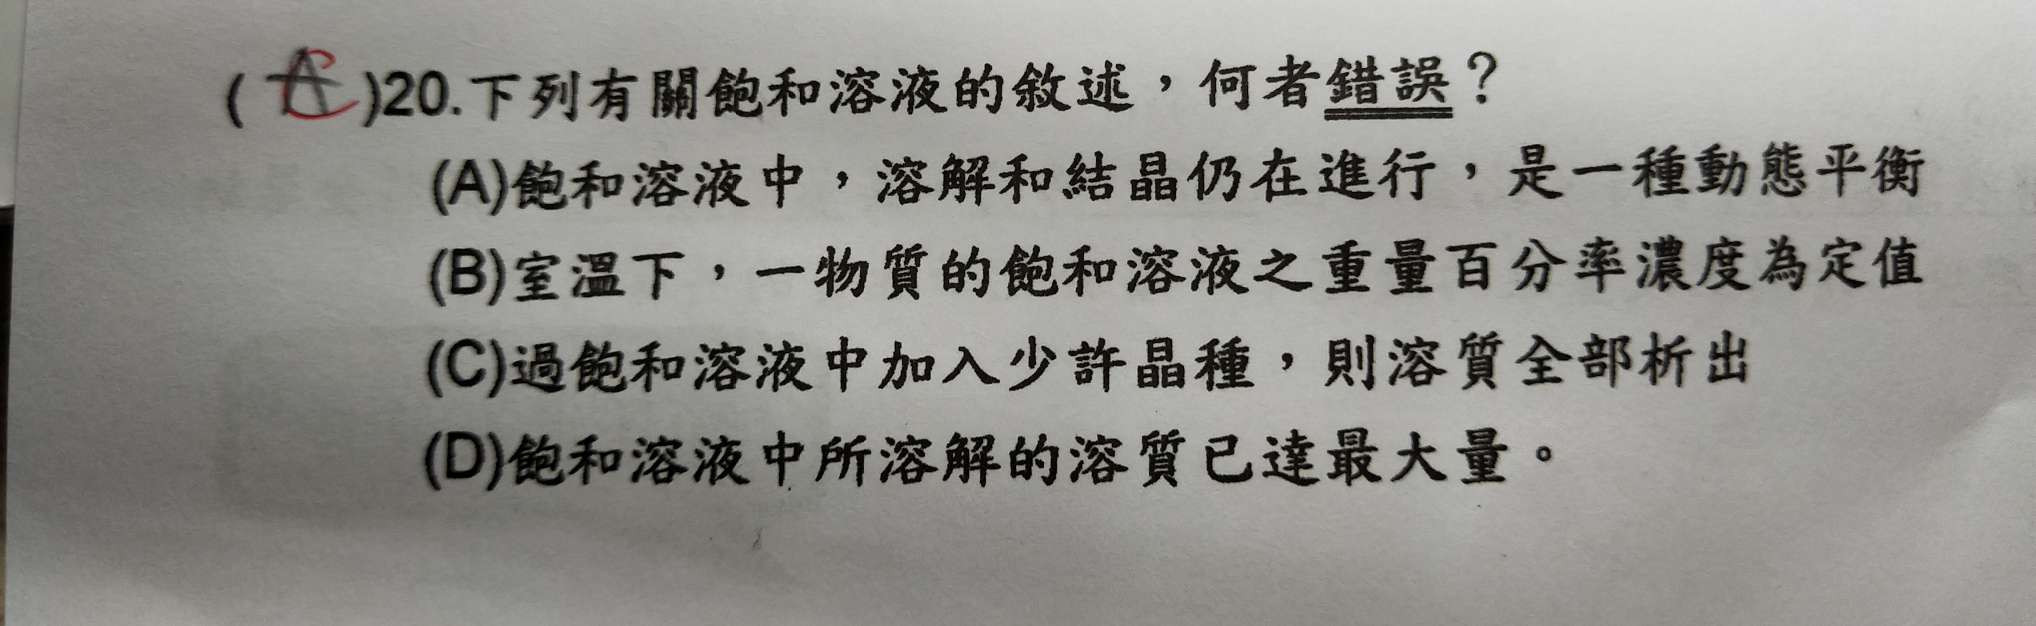 ( C )20.下列有關飽和溶液的敘述，何者錯誤？
(A)飽和溶液中，溶解和結晶仍在進行，是一種動態平衡
(B)室溫下，一物質的飽和溶液之重量百分率濃度為定值
(C)過飽和溶液中加入少許晶種，則溶質全部析出
(D)飽和溶液中所溶解的溶質已達最大量。